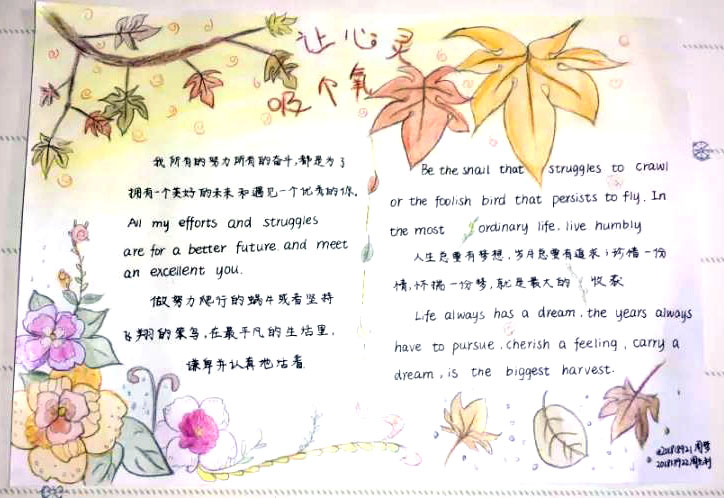 让心灵
吸个氧
我所有的努力所有的奋斗,都是为了
拥有一个美好的未来和遇见一个优秀的你。
All my efforts and struggles
are for a better future and meet
an excellent you.
做努力爬行的蜗牛或者坚持
飞翔的笨鸟,在最平凡的生活里,
谦卑并认真地活着
Be the snail that struggles to crawl
or the foolish bird that persists to fly. In
the most ordinary life, live humbly
人生总要有梦想,岁月总要有追求;珍惜一份
情,怀揣一份梦,就是最大的收获
Life always has a dream, the years always
have to pursue, cherish a feeling, carry a
dream, is the biggest harvest.